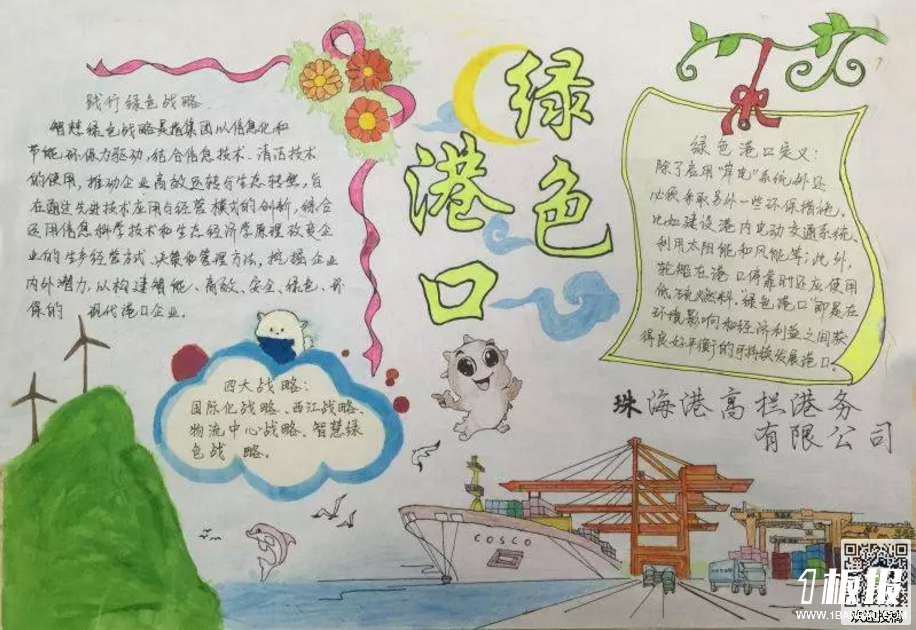 绿色
港口
践行绿色战略
智慧绿色战略是指集团以信息化和
节能环保为驱动，结合信息技术、清洁技术
的使用，推动企业高效运转与生态转型，旨
在通过先进技术应用与经营模式的创新，综合
运用信息科学技术和生态经济学原理改变企
业的生产经营方式、决策和管理方法，挖掘企业
内外潜力，以构建智能、高效、安全、绿色、环
保的 现代港口企业。
四大战略：
国际化战略、西江战略、
物流中心战略、智慧绿
色战 略。
绿色港口定义：
除了启用“岸电”系统外还
必须采取另外一些环保措施。
比如建设港内电动交通系统、
利用太阳能和风能等；此外，
轮船在港口停靠时还应使用
低硫燃料。绿色港口即是在
环境影响和经济利益之间获
得良好平衡的可持续发展港口。
珠海港高栏港务
有限公司
COSCO
1板报
WWW.1BANBAO.COM
欢迎投稿